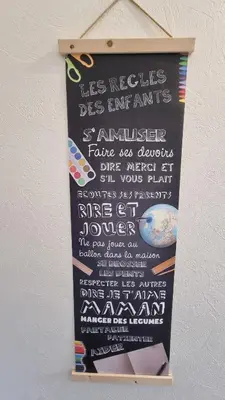 LES REGLES
DES ENFANTS
S'AMUSER
Faire ses devoirs
DIRE MERCI ET
S'IL VOUS PLAIT
ECOUTER SES PARENTS
RIRE ET
JOUER
Ne pas jouer au
ballon dans la maison
SE BROSSER
LES DENTS
RESPECTER LES AUTRES
DIRE JE T'AIME
MAMAN
MANGER DES LEGUMES
PARTAGER
PATIENTER
AIDER